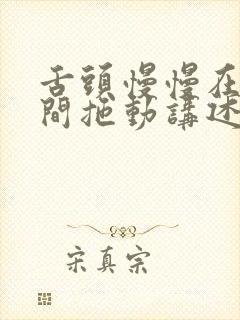 舌頭慢慢在
間拖動講述
宋真宗